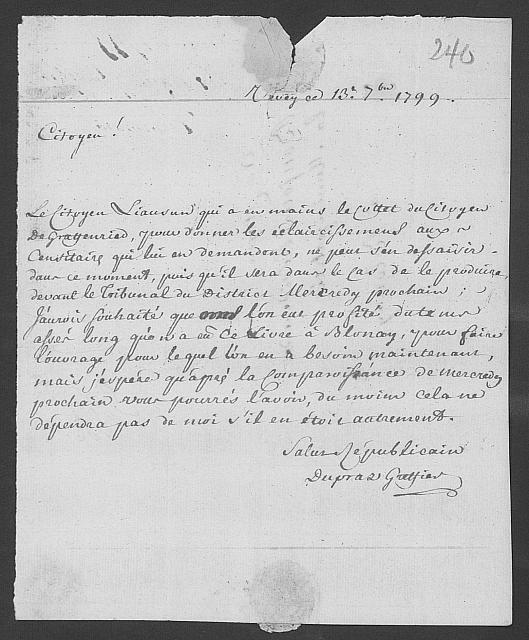 240
Vevey ce 13e 7bre 1799.
Citoyen!
Le Citoyen Liausun qui a en mains le Cottet du Citoyen
De Graffenried, pour donner les éclaircissemens aux
Censitaire qui lui en demandont, ne peut s'en dessaisir
dans ce moment, puis qu'il sera dans le cas de le produire
devant le Tribunal du District Mercredy prochain;
J'aurois souhaité que l'on eut profité du tems
assés long qu'on a eu Ce Livre à Blonay, pour faire
l'ouvrage pour lequel l'on en a besoin maintenant,
mais j'espère qu'après la Comparoissance de Mercredy
prochain vous pourrés l'avoir, du moins cela ne
dépendra pas de moi s'il en étoit autrement.
Salut Républicain
Dupraz Greffier